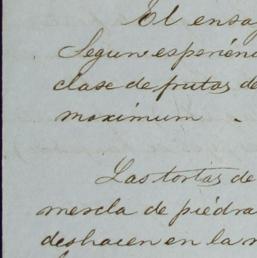 El ensa
Segun esperienc
clase de frutas de
maximum .
Las tortas de
mezcla de piédra
deshacen en la m